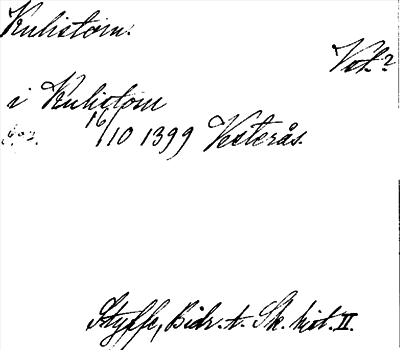 Kulistom.
Vet.?
i Kulistom
16/10 1399 Vesterås.
Styffe, Bidr. t. Sk. hist. II.